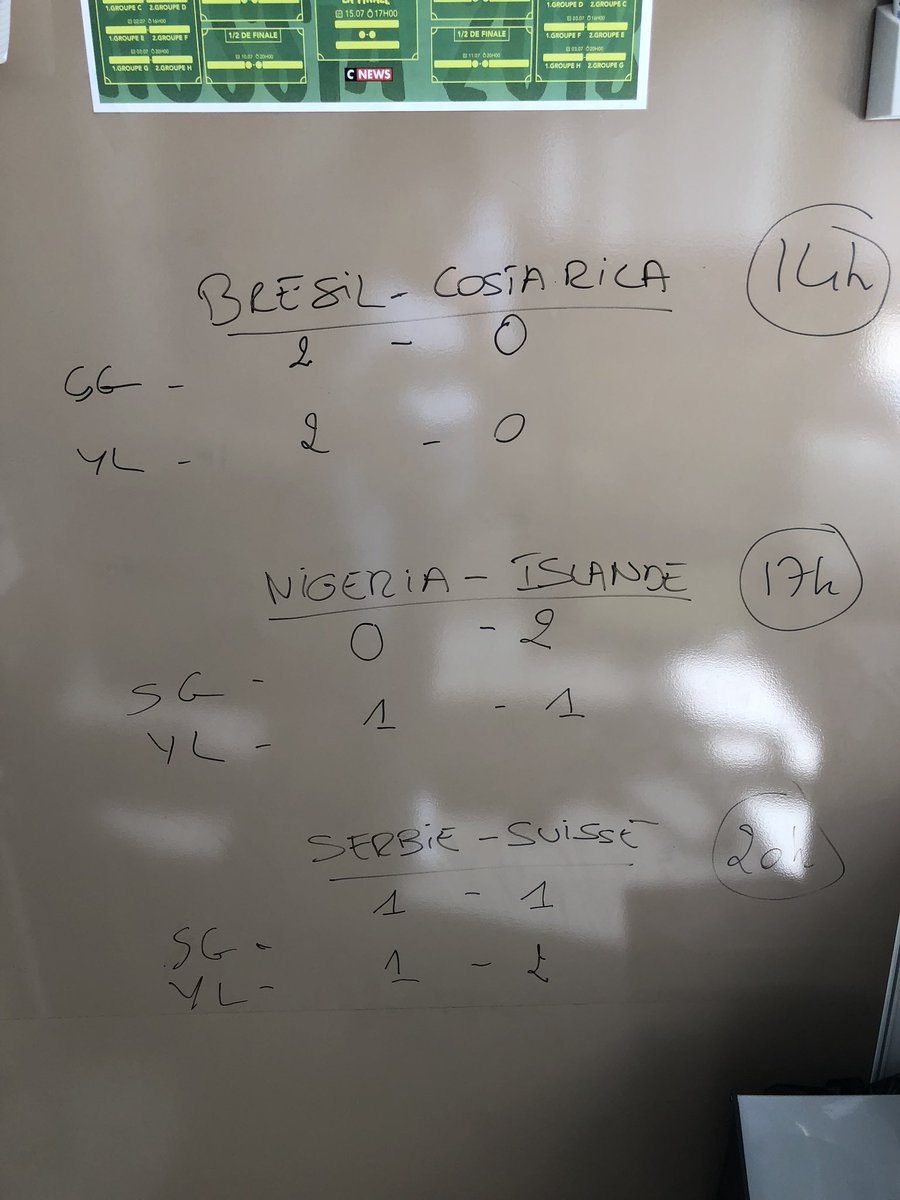 1.GROUPE C 2.GROUPE D
02.07 16H00
1.GROUPE E 2.GROUPE F
02.07 20H00
1.GROUPE G 2.GROUPE H
1/2 DE FINALE
10.07 20H00
LA FINALE
15.07 17H00
CNEWS
1/2 DE FINALE
11.07 20H00
1.GROUPE D 2.GROUPE C
03.07 16H00
1.GROUPE F 2.GROUPE E
03.07 20H00
1.GROUPE H 2.GROUPE G
BRESIL - COSTA RICA 14h
SG - 2 - 0
YL - 2 - 0
NIGERIA - ISLANDE 17h
SG - 0 - 2
YL - 1 - 1
SERBIE - SUISSE 20h
SG - 1 - 1
YL - 1 - 2